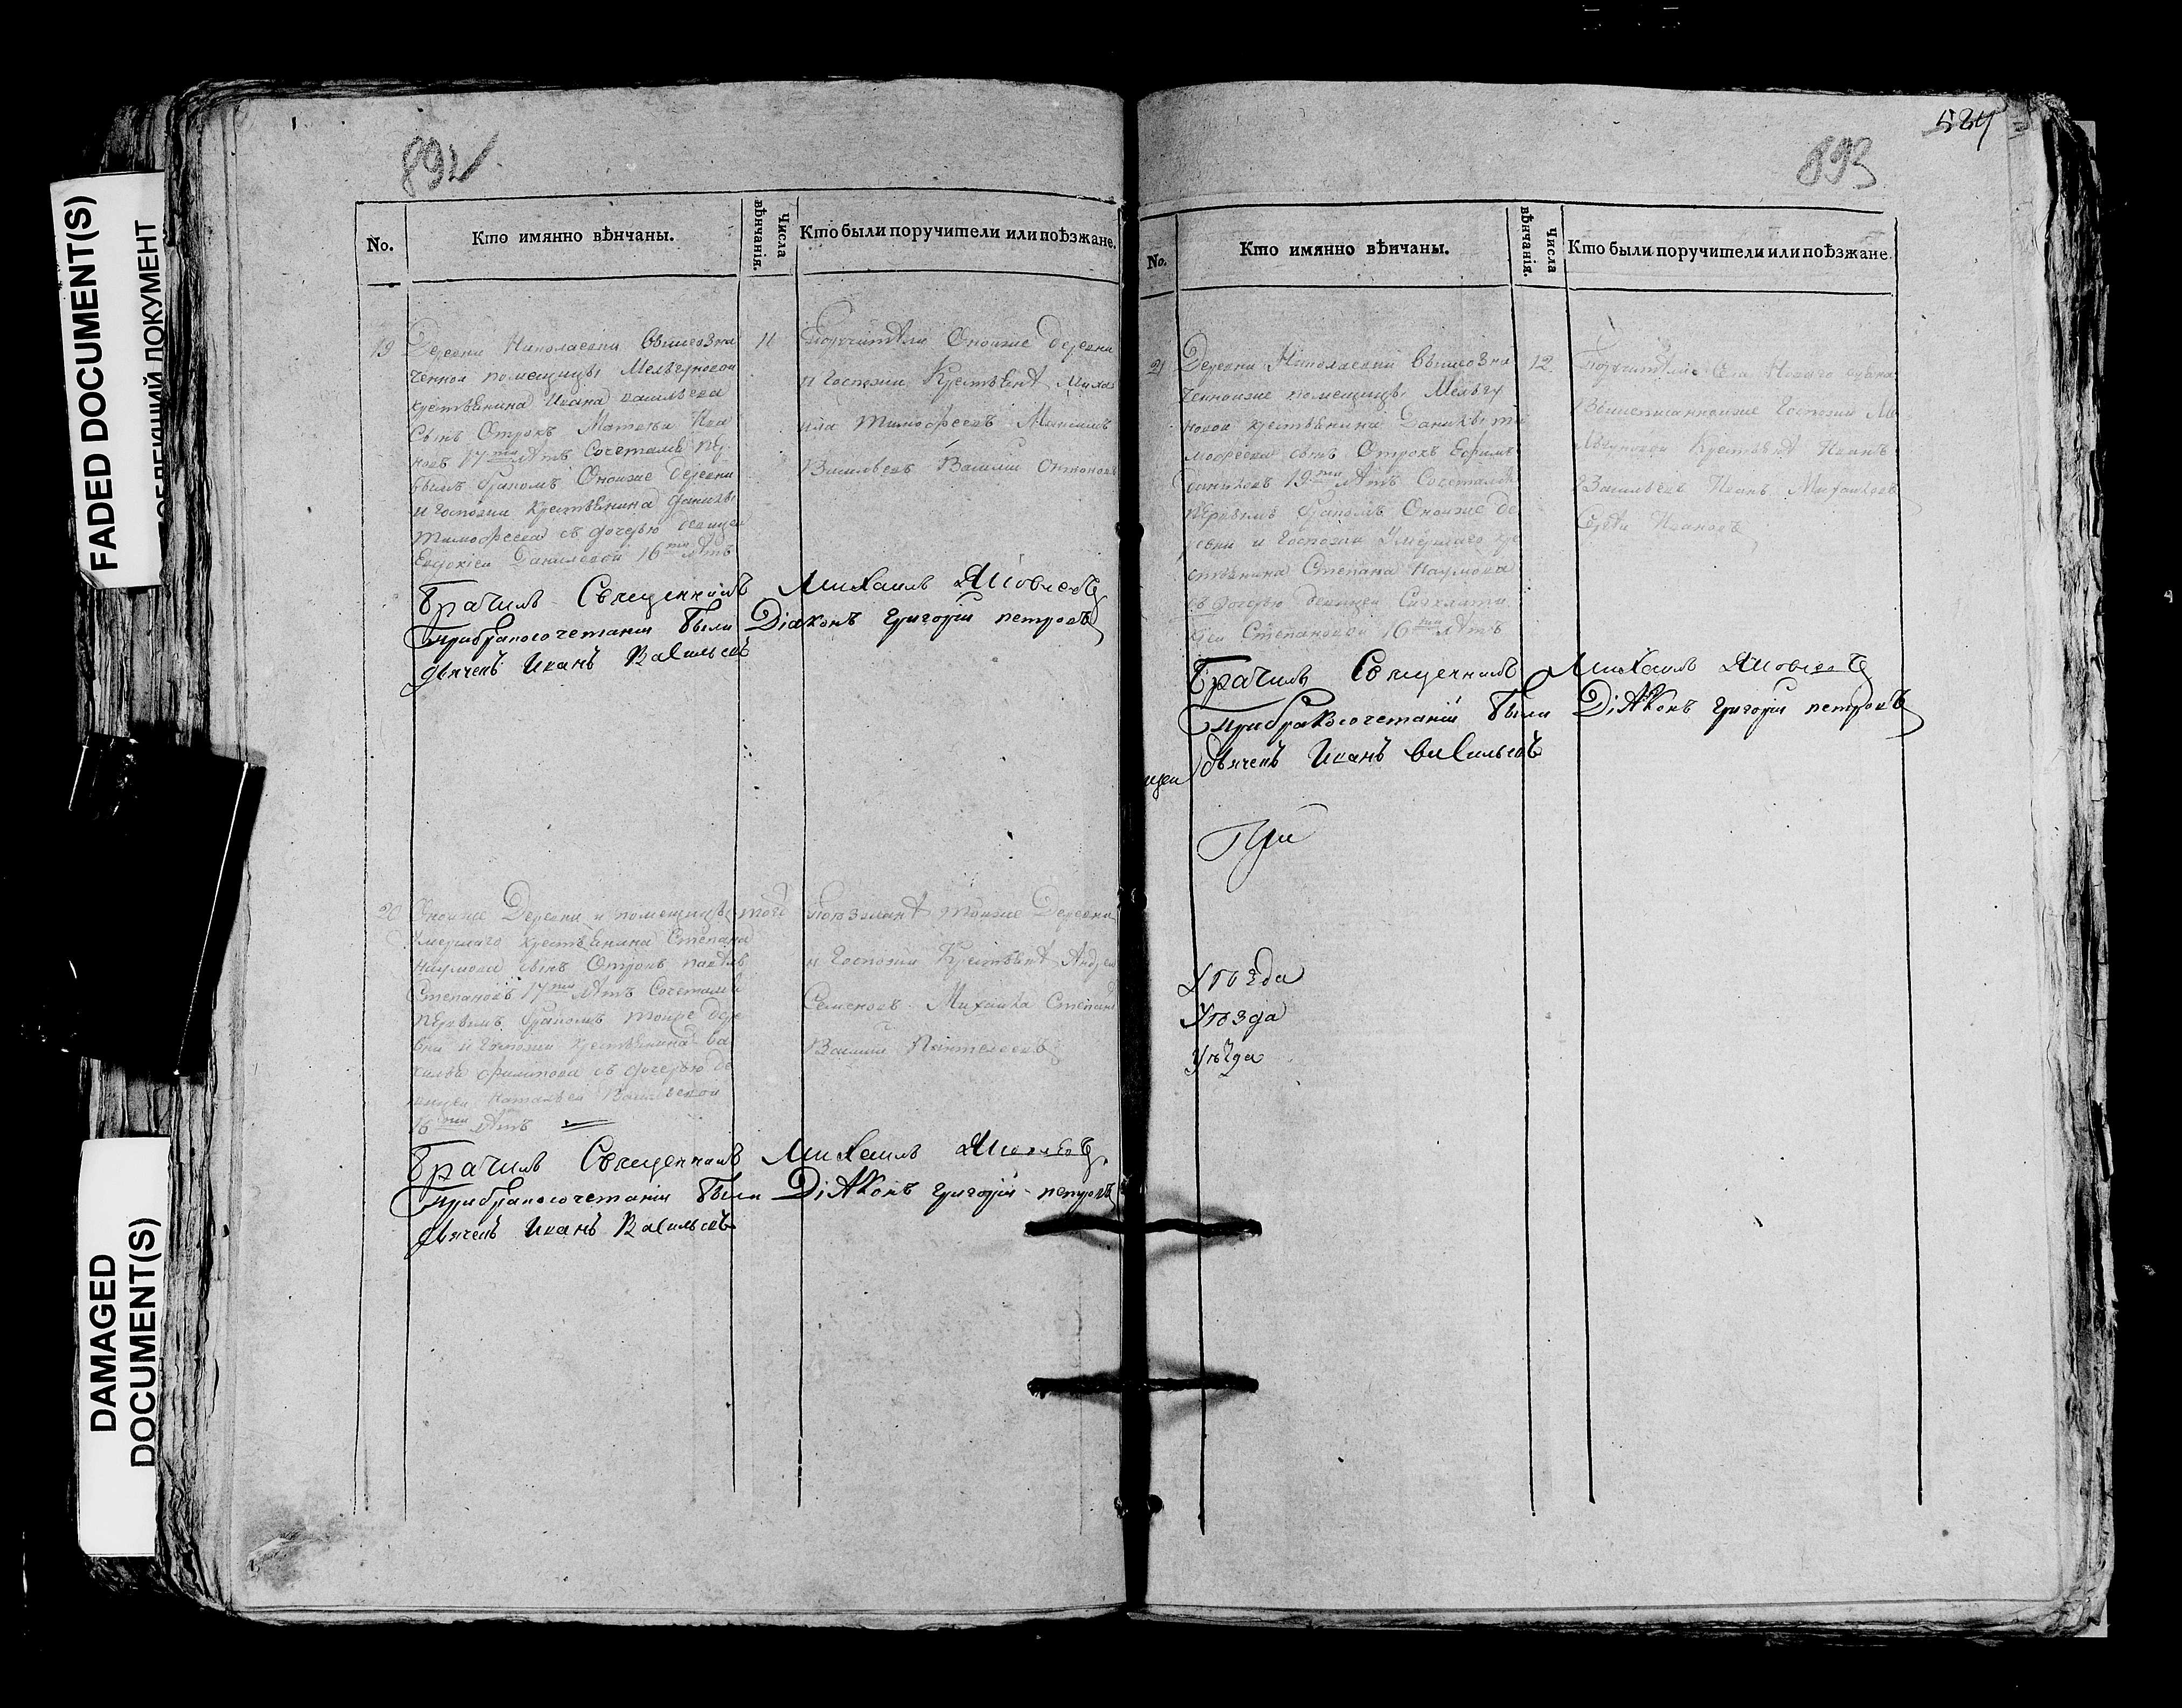 FADED DOCUMENT(S)
DAMAGED
DOCUMENT(S)
892
No.
Кто имянно вѣнчаны.
Числа
вѣнчанія.
Кто были поручители или поѣзжане.
19
Деревни Николаевки вышеозна
ченной помещицы Мельгуновой
крестьянина Ивана васильева
Сынъ Отрокъ Матвей Ива
новъ 17ти лѣтъ Сочетался пер
вымъ бракомъ Оноиже деревни
и Госпожи крестьянина данилы
тимофеева съ дочерью девицею
Евдокіею Даниловой 16ти лѣтъ
11
Поручители Оноиже деревни
и Госпожи Крестьяне Миха
ила Тимофеевъ Максимъ
Васильевъ Василий Антоновъ
Брачилъ Священникъ Михаилъ Яковлевъ
Прибракосочетании были Діаконъ григорій петровъ
дьячекъ Иванъ Васильевъ
20
Оноиже Деревни и помещицы
Умершаго крестьянина Степана
Наумова сынъ Отрокъ павелъ
Степановъ 17ти лѣтъ Сочетался
первымъ бракомъ тоиже дере
вни и Госпожи крестьянина ва
силья филипова съ дочерью де
вицею Натальей Васильевой
16ти лѣтъ
Поезжане тоиже Деревни
и Госпожи Крестьяне Андрей
Семеновъ Михайла Степанов
Василий Пантелеевъ
Брачилъ Священникъ Михаилъ Яковлевъ
Прибракосочетании были Діаконъ григорій петровъ
дьячекъ Иванъ Васильевъ
524
893
No.
Кто имянно вѣнчаны.
Числа
вѣнчанія.
Кто были поручители или поѣзжане.
21
Деревни Николаевки вышеозна
ченноиже помещицы Мельгу
новой крестьянина Данилы ти
мофеева сынъ Отрокъ Ефимъ
Даниловъ 19ти лѣтъ Сочетался
первымъ бракомъ Оноиже де
ревни и Госпожи Умершаго кре
стьянина Степана Наумова
съ дочерью девицей
Степановой 16ти лѣтъ
12
Поручители Села
Вышеписанноиже Госпожи Ме
льгуновой Крестьяне Иванъ
Васильевъ Иванъ Михайловъ
Сергей Ивановъ
Брачилъ Священникъ Михаилъ Яковлевъ
Прибракосочетаніи были Діаконъ григорій петровъ
дьячекъ Иванъ васильевъ
При
Уѣзда
Уѣзда
Уѣзда